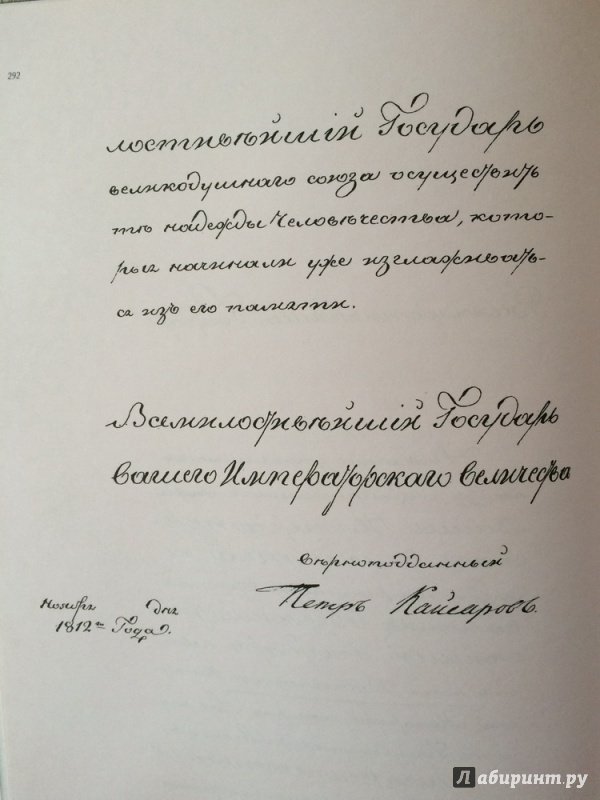 292
лостивѣйшій Государь
великодушнаго союза осуществить
тѣ надежды человѣчества, кото-
рыя начинали уже изглаживать-
ся изъ его памяти.
Всемилостивѣйшій Государь
вашего Императорскаго величества
вѣрноподданный
Петръ Кайсаровъ.
Ноября дня
1812го Года.
Лабиринт.ру